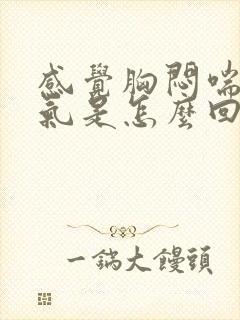 感覺胸悶喘
氣是怎麼回
一鍋大饅頭